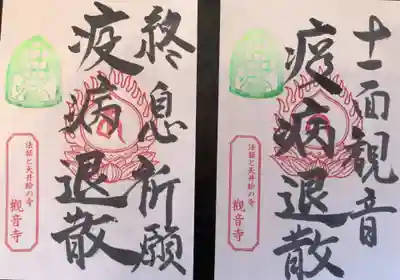 終息祈願
疫病退散
法話と天井絵の寺
觀音寺
十一面観音
疫病退散
法話と天井絵の寺
觀音寺